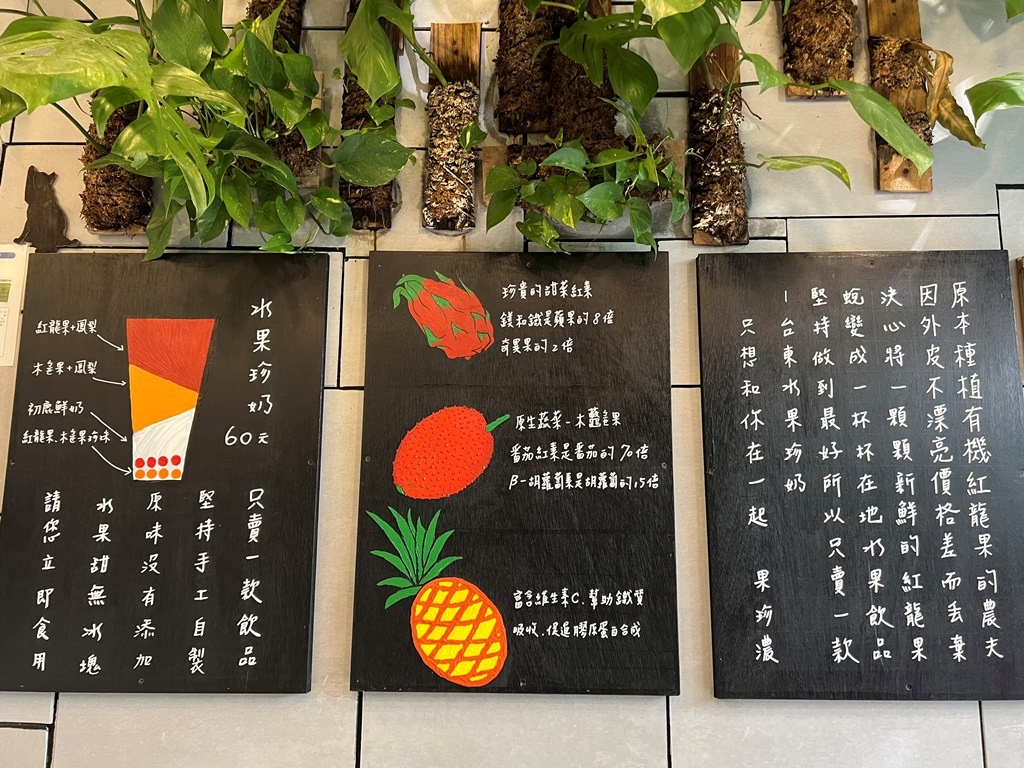 水果珍奶
60元
紅龍果+鳳梨
木鱉果+鳳梨
初鹿鮮奶
紅龍果.木鱉果珍珠
只賣一款飲品
堅持手工自製
原味沒有添加
水果甜無冰塊
請您立即食用
珍貴的甜菜紅素
鎂和鐵是蘋果的8倍
奇異果的2倍
原生蔬菜-木鱉果
番茄紅素是番茄的70倍
β-胡蘿蔔素是胡蘿蔔的15倍
富含維生素C.幫助鐵質
吸收.促進膠原蛋白合成
原本種植有機紅龍果的農夫
因外皮不漂亮價格差而丟棄
決心將一顆顆新鮮的紅龍果
蛻變成一杯杯在地水果飲品
堅持做到最好所以只賣一款
－台東水果珍奶
只想和你在一起 果珍濃